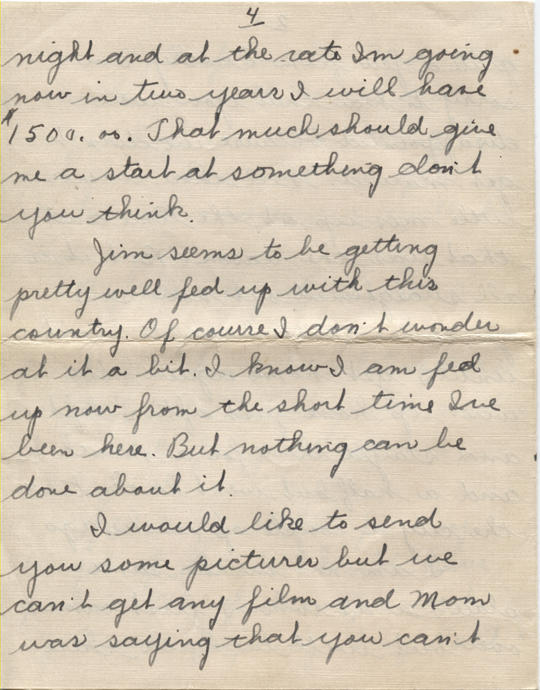 4
night and at the rate Im going
now in two years I will have
$1500.00. That much should give
me a start at something don't
you think.
Jim seems to be getting
pretty well fed up with this
country. Of course I don't wonder
at it a bit. I know I am fed
up now from the short time I've
been here. But nothing can be
done about it.
I would like to send
you some pictures but we
can't get any film and Mom
was saying that you can't